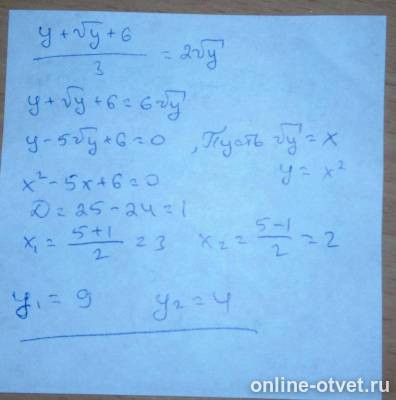 (y + √y + 6) / 3 = 2√y
y + √y + 6 = 6√y
y - 5√y + 6 = 0 , Пусть √y = x
y = x²
x² - 5x + 6 = 0
D = 25 - 24 = 1
x₁ = (5+1) / 2 = 3 x₂ = (5-1) / 2 = 2
y₁ = 9 y₂ = 4
online-otvet.ru